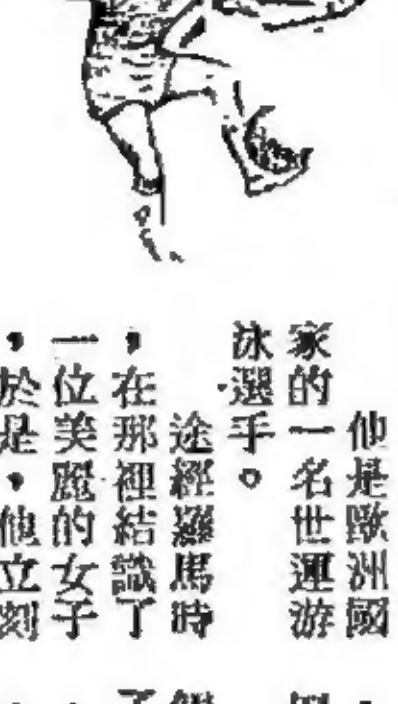 他是歐洲國
家的一名世運游
泳選手。
途經羅馬時
，在那裡結識了
一位美麗的女子
，於是，他立刻